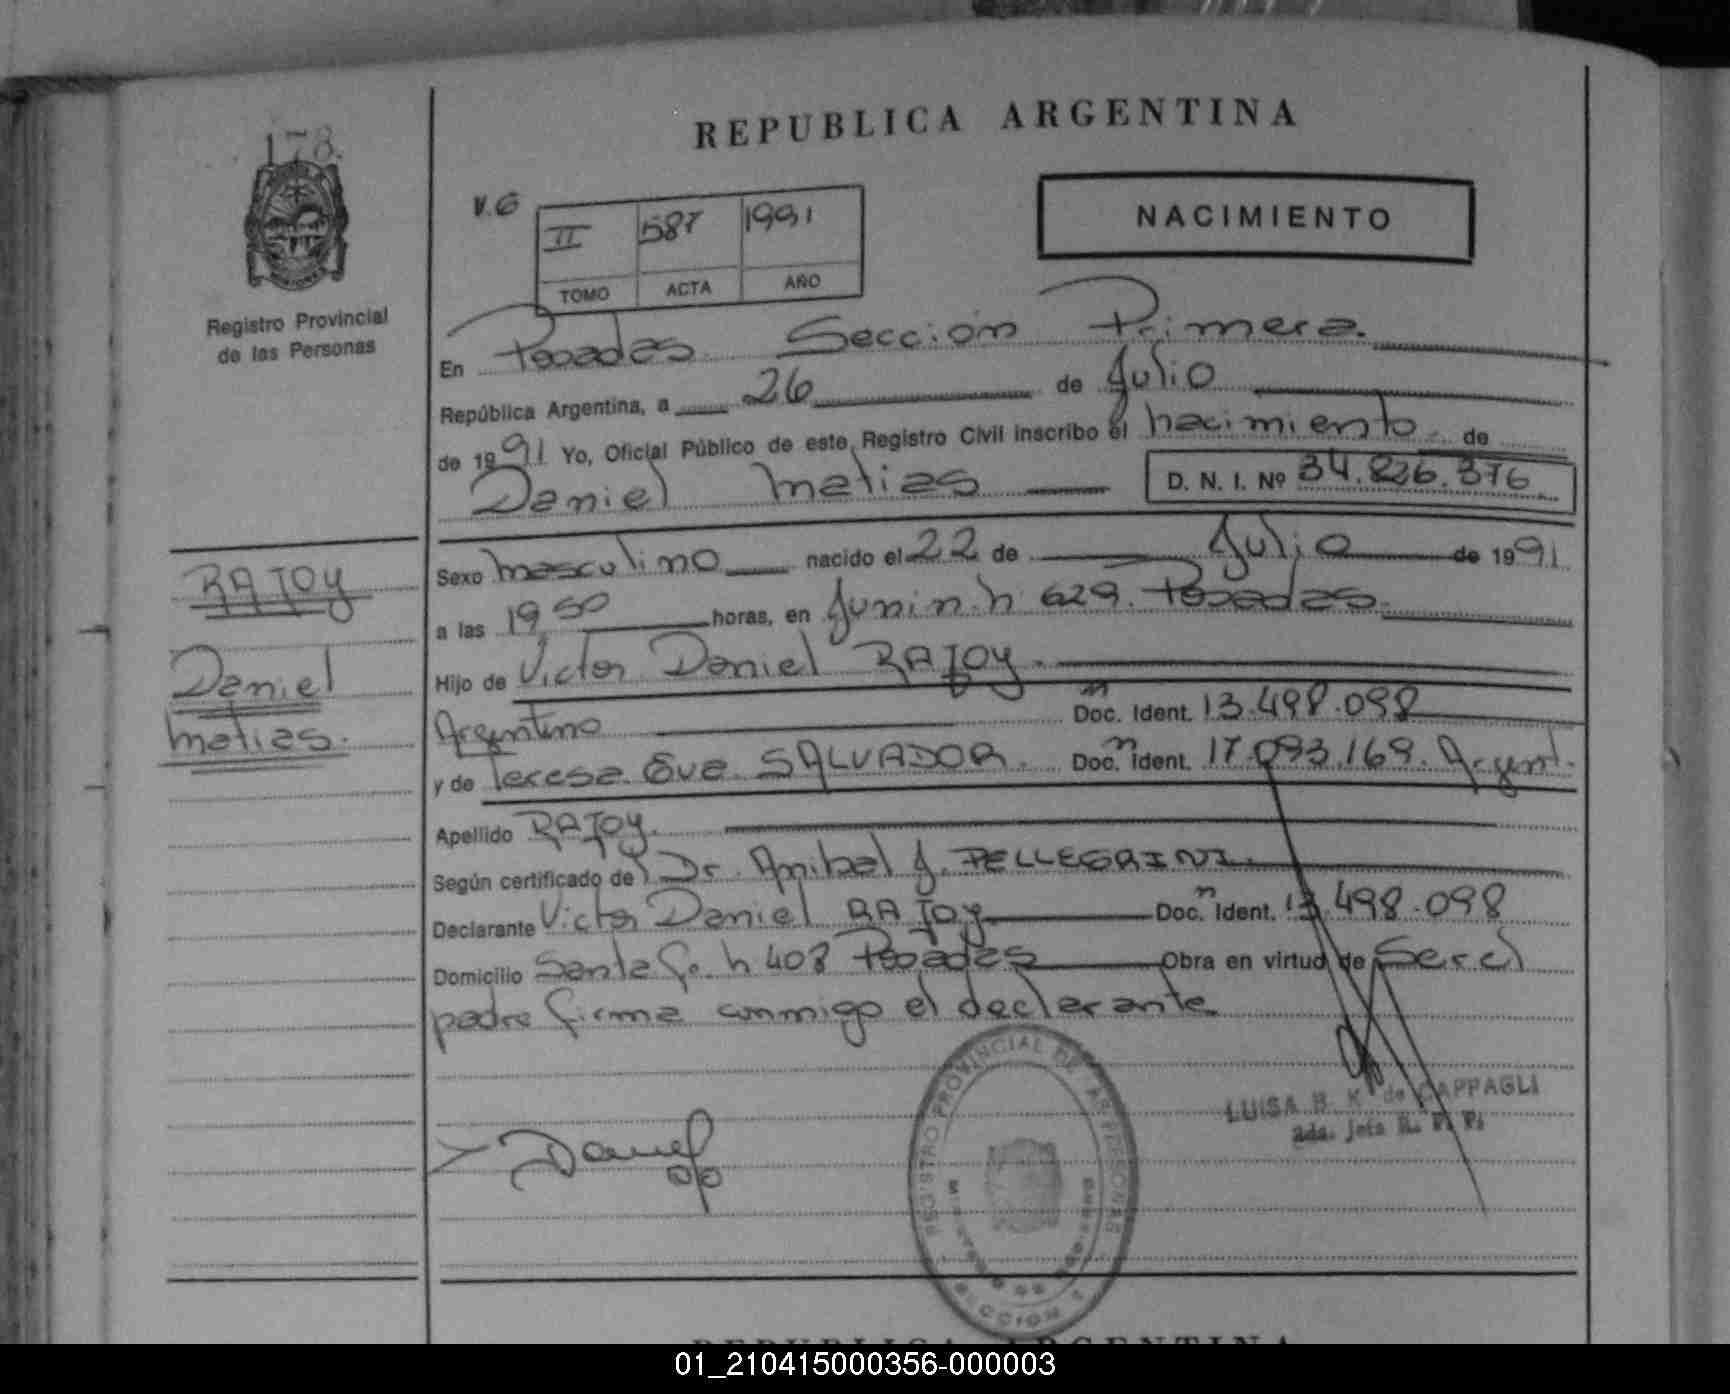 178.
REPUBLICA ARGENTINA
V.G
II 587 1991
TOMO ACTA AÑO
NACIMIENTO
Registro Provincial
de las Personas
En Posadas Sección Primera.
República Argentina, a 26 de Julio
de 1991 Yo, Oficial Público de este Registro Civil inscribo el nacimiento de
Daniel Matias D. N. I. Nº 34.826.376
RAJOY
Daniel
Matias.
Sexo masculino nacido el 22 de Julio de 1991
a las 19,50 horas, en Junin n 629. Posadas.
Hijo de Victor Daniel RAJOY.
Argentino Doc. Ident. 13.498.098
y de Teresa Eva SALVADOR. Doc. Ident. 17.093.169. Argent.
Apellido RAJOY.
Según certificado de Dr. Anibal J. PELLEGRINI.
Declarante Victor Daniel RAJOY Doc. Ident. 13.498.098
Domicilio Santa Fe n 408 Posadas Obra en virtud de Ser el
padre firma conmigo el declarante
REGISTRO PROVINCIAL DE LAS PERSONAS
SECCION 1
LUISA B. K. de CAPPAGLI
REPUBLICA ARGENTINA
01_210415000356-000003